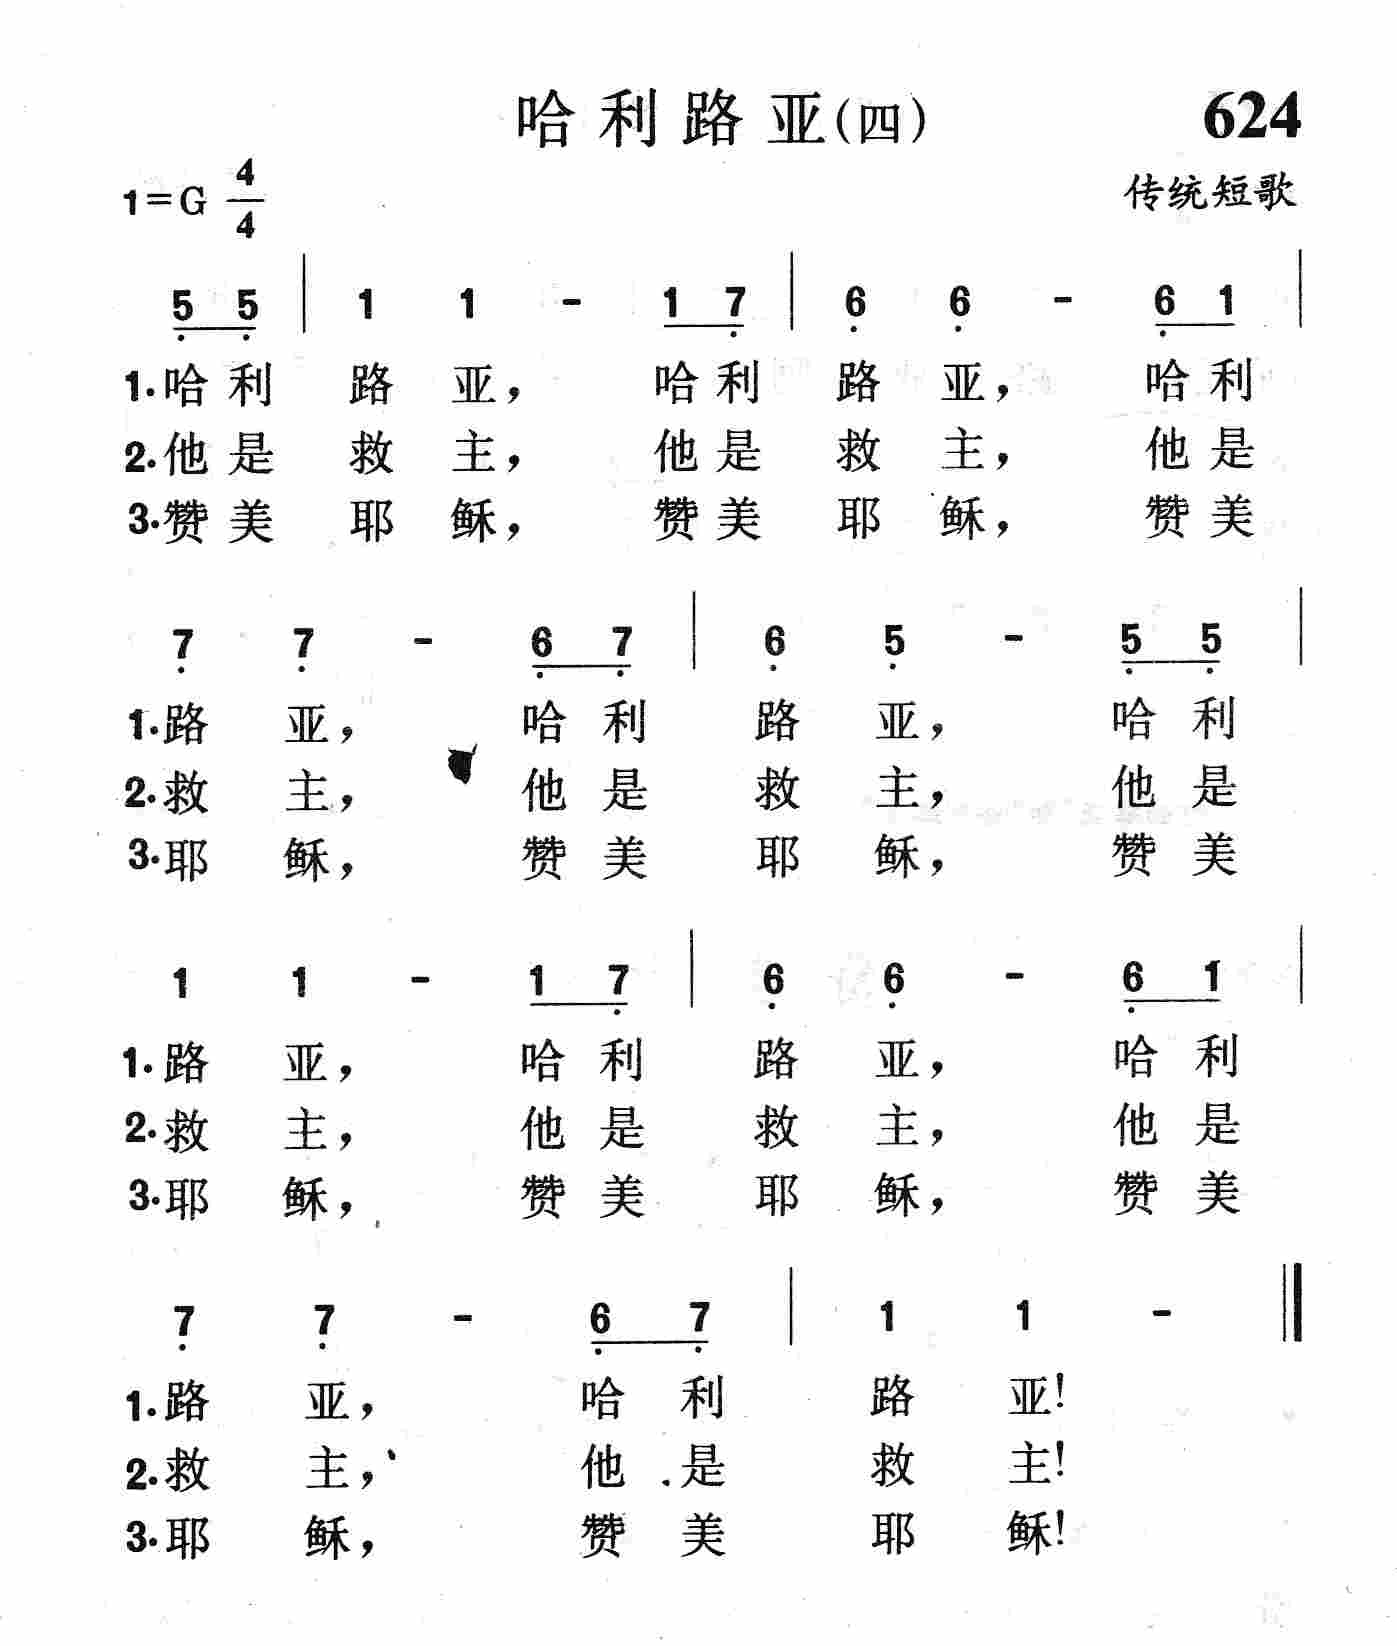 哈利路亚(四) 624
1=G 4/4 传统短歌
5 5 | 1 1 - 1 7 | 6 6 - 6 1 |
1.哈利 路 亚， 哈利 路 亚， 哈利
2.他是 救 主， 他是 救 主， 他是
3.赞美 耶 稣， 赞美 耶 稣， 赞美
7 7 - 6 7 | 6 5 - 5 5 |
1.路 亚， 哈利 路 亚， 哈利
2.救 主， 他是 救 主， 他是
3.耶 稣， 赞美 耶 稣， 赞美
1 1 - 1 7 | 6 6 - 6 1 |
1.路 亚， 哈利 路 亚， 哈利
2.救 主， 他是 救 主， 他是
3.耶 稣， 赞美 耶 稣， 赞美
7 7 - 6 7 | 1 1 - ‖
1.路 亚， 哈利 路 亚!
2.救 主， 他是 救 主!
3.耶 稣， 赞美 耶 稣!